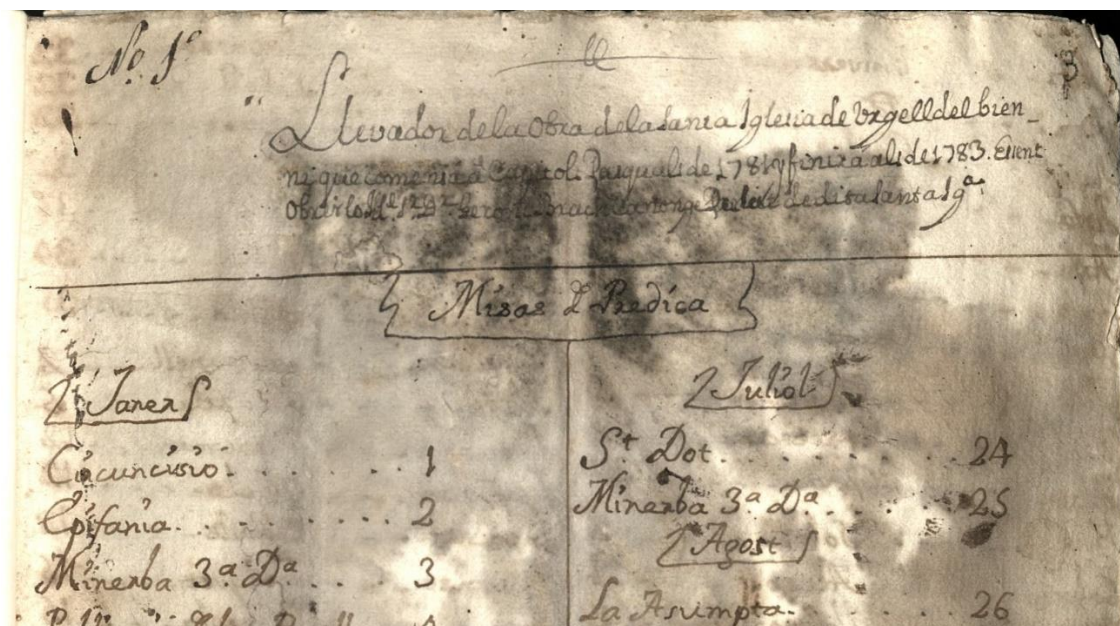 No. 1º
3
Llevador de la Obra de la santa Iglesia de Urgell del bien-
ni que comensa á Capitol Pasqual de 1781 y finirá al de 1783. Essent
Obrer lo Canonge de dita santa Igª
Misas d Predica
Janer
Circuncisió. 1
Epifania. 2
Minerba 3ª Dª 3
Juliòl
St Dot. 24
Minerba 3ª Dª. 25
Agost
La Asumpta. 26